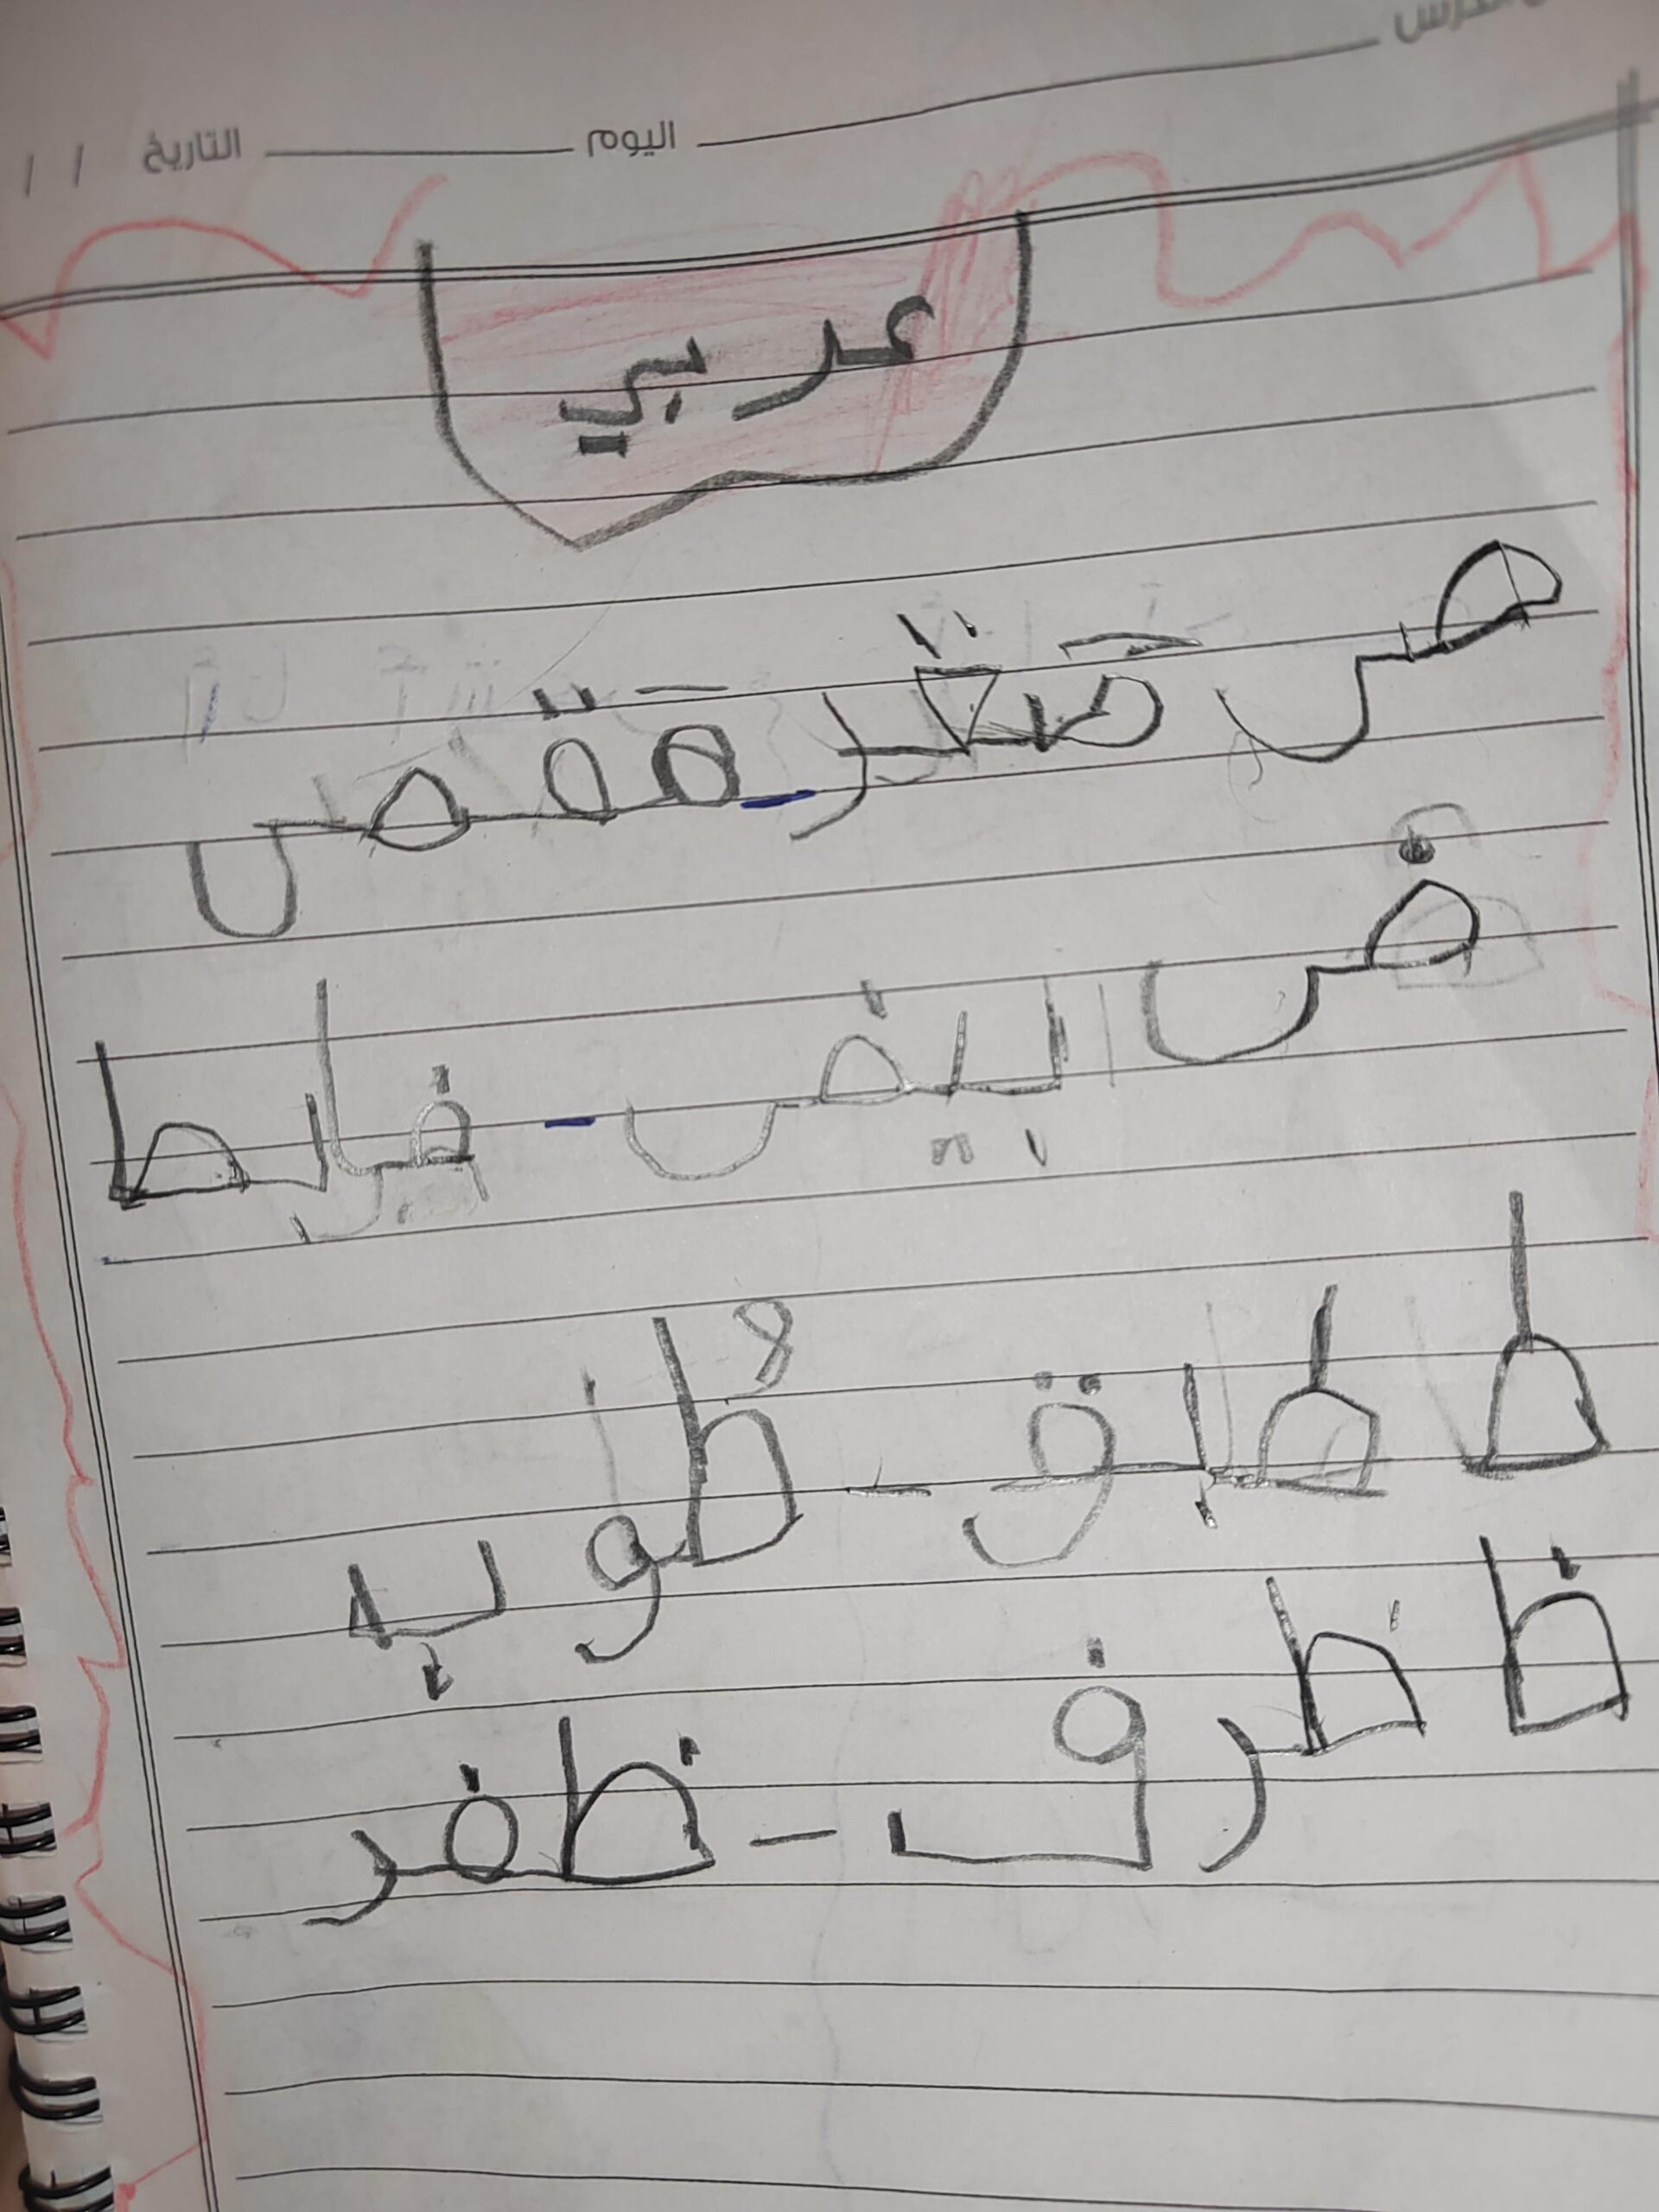 الدرس
اليوم التاريخ / /
عربي
ص صَغر - قَفص
ض ابيض - ضابط
ط طابق - طُوب
ظ ظرف - ظفر